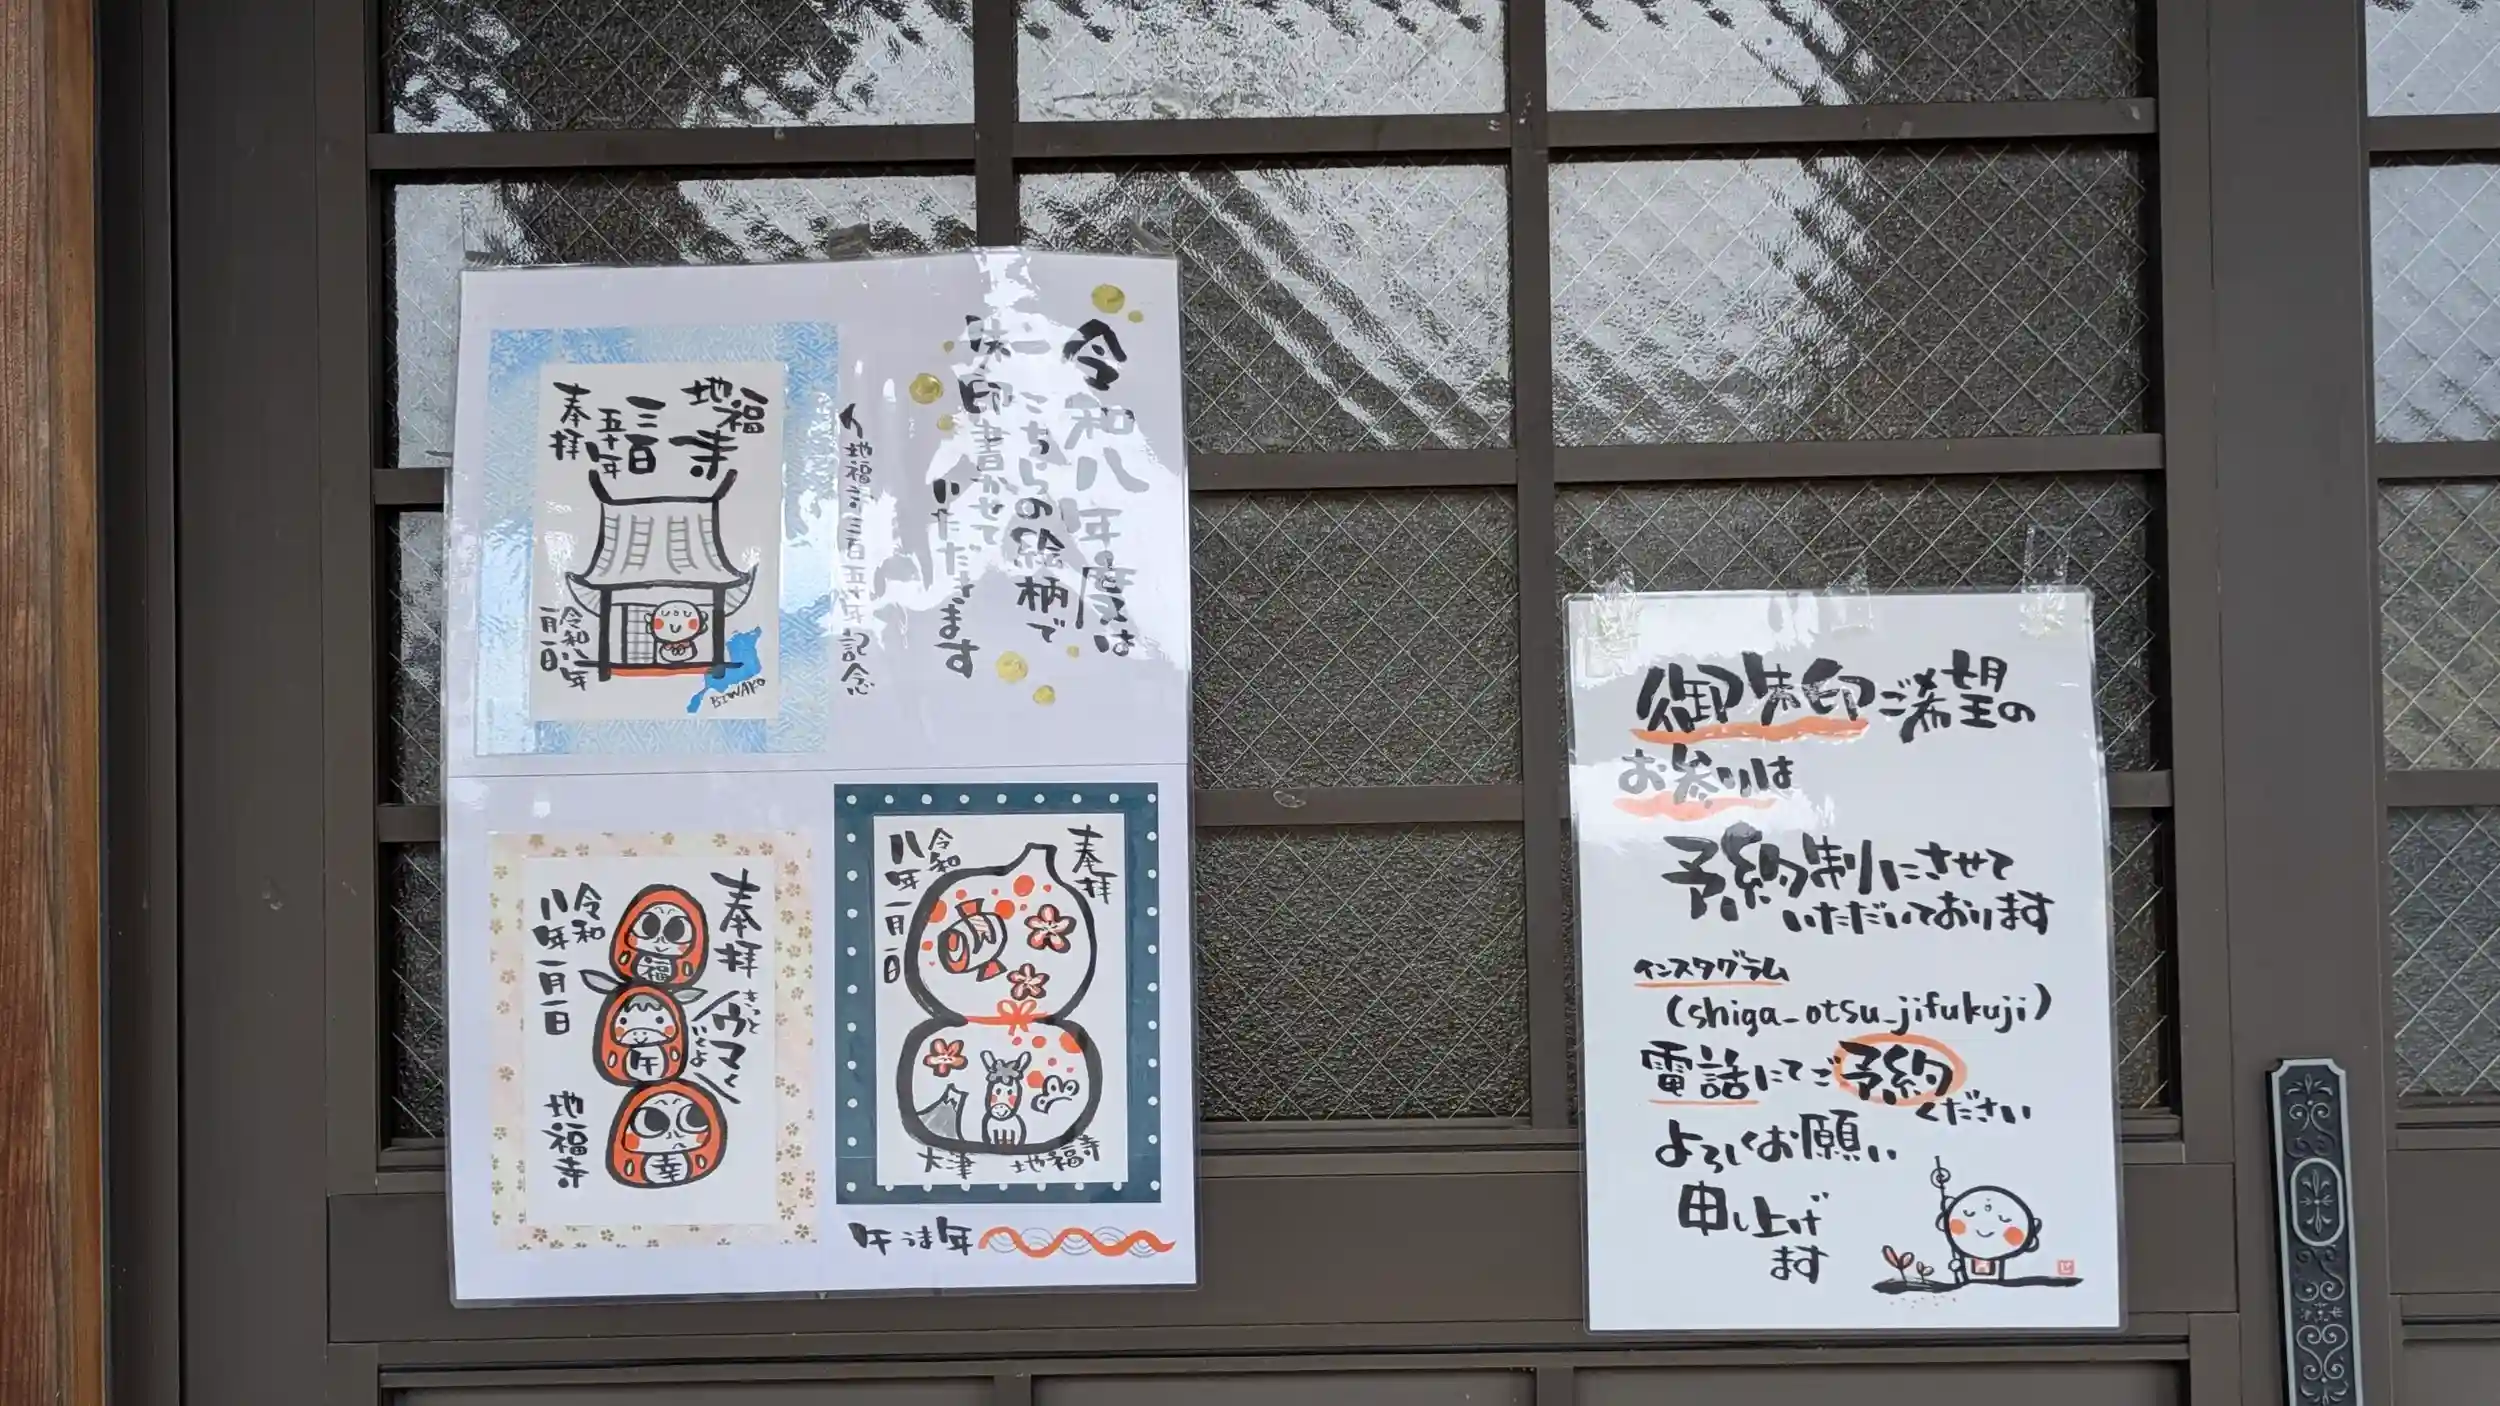 令和八年度は
こちらの絵柄で
朱印書かせて
いただきます
地福寺三百五十年記念
地福寺
三百
五十年
奉拝
令和八年
一月一日
BIWAKO
奉拝
きっと
ウマく
いくよ
令和
八年一月一日
地福寺
福
午
幸
奉拝
令和
八年一月一日
大津 地福寺
午うま年
御朱印ご希望の
お参りは
予約制にさせて
いただいております
インスタグラム
(shiga_otsu_jifukuji)
電話にてご予約
ください
よろしくお願い
申し上げ
ます